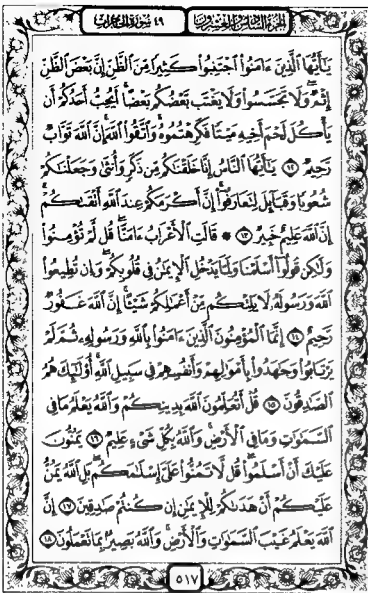 الجزء السادس والعشرون ٤٩ سورة الحجرات
يَـٰٓأَيُّهَا ٱلَّذِينَ ءَامَنُوا۟ ٱجْتَنِبُوا۟ كَثِيرًا مِّنَ ٱلظَّنِّ إِنَّ بَعْضَ ٱلظَّنِّ
إِثْمٌ ۖ وَلَا تَجَسَّسُوا۟ وَلَا يَغْتَب بَّعْضُكُم بَعْضًا ۚ أَيُحِبُّ أَحَدُكُمْ أَن
يَأْكُلَ لَحْمَ أَخِيهِ مَيْتًا فَكَرِهْتُمُوهُ ۚ وَٱتَّقُوا۟ ٱللَّهَ ۚ إِنَّ ٱللَّهَ تَوَّابٌ
رَّحِيمٌ ١٢ يَـٰٓأَيُّهَا ٱلنَّاسُ إِنَّا خَلَقْنَـٰكُم مِّن ذَكَرٍ وَأُنثَىٰ وَجَعَلْنَـٰكُمْ
شُعُوبًا وَقَبَآئِلَ لِتَعَارَفُوٓا۟ ۚ إِنَّ أَكْرَمَكُمْ عِندَ ٱللَّهِ أَتْقَىٰكُمْ ۚ
إِنَّ ٱللَّهَ عَلِيمٌ خَبِيرٌ ١٣ ۞ قَالَتِ ٱلْأَعْرَابُ ءَامَنَّا ۖ قُل لَّمْ تُؤْمِنُوا۟
وَلَـٰكِن قُولُوٓا۟ أَسْلَمْنَا وَلَمَّا يَدْخُلِ ٱلْإِيمَـٰنُ فِى قُلُوبِكُمْ ۖ وَإِن تُطِيعُوا۟
ٱللَّهَ وَرَسُولَهُۥ لَا يَلِتْكُم مِّنْ أَعْمَـٰلِكُمْ شَيْـًٔا ۚ إِنَّ ٱللَّهَ غَفُورٌ
رَّحِيمٌ ١٤ إِنَّمَا ٱلْمُؤْمِنُونَ ٱلَّذِينَ ءَامَنُوا۟ بِٱللَّهِ وَرَسُولِهِۦ ثُمَّ لَمْ
يَرْتَابُوا۟ وَجَـٰهَدُوا۟ بِأَمْوَٰلِهِمْ وَأَنفُسِهِمْ فِى سَبِيلِ ٱللَّهِ ۚ أُو۟لَـٰٓئِكَ هُمُ
ٱلصَّـٰدِقُونَ ١٥ قُلْ أَتُعَلِّمُونَ ٱللَّهَ بِدِينِكُمْ وَٱللَّهُ يَعْلَمُ مَا فِى
ٱلسَّمَـٰوَٰتِ وَمَا فِى ٱلْأَرْضِ ۚ وَٱللَّهُ بِكُلِّ شَىْءٍ عَلِيمٌ ١٦ يَمُنُّونَ
عَلَيْكَ أَنْ أَسْلَمُوا۟ ۖ قُل لَّا تَمُنُّوا۟ عَلَىَّ إِسْلَـٰمَكُم ۖ بَلِ ٱللَّهُ يَمُنُّ
عَلَيْكُمْ أَنْ هَدَىٰكُمْ لِلْإِيمَـٰنِ إِن كُنتُمْ صَـٰدِقِينَ ١٧ إِنَّ
ٱللَّهَ يَعْلَمُ غَيْبَ ٱلسَّمَـٰوَٰتِ وَٱلْأَرْضِ ۚ وَٱللَّهُ بَصِيرٌۢ بِمَا تَعْمَلُونَ ١٨
٥١٧